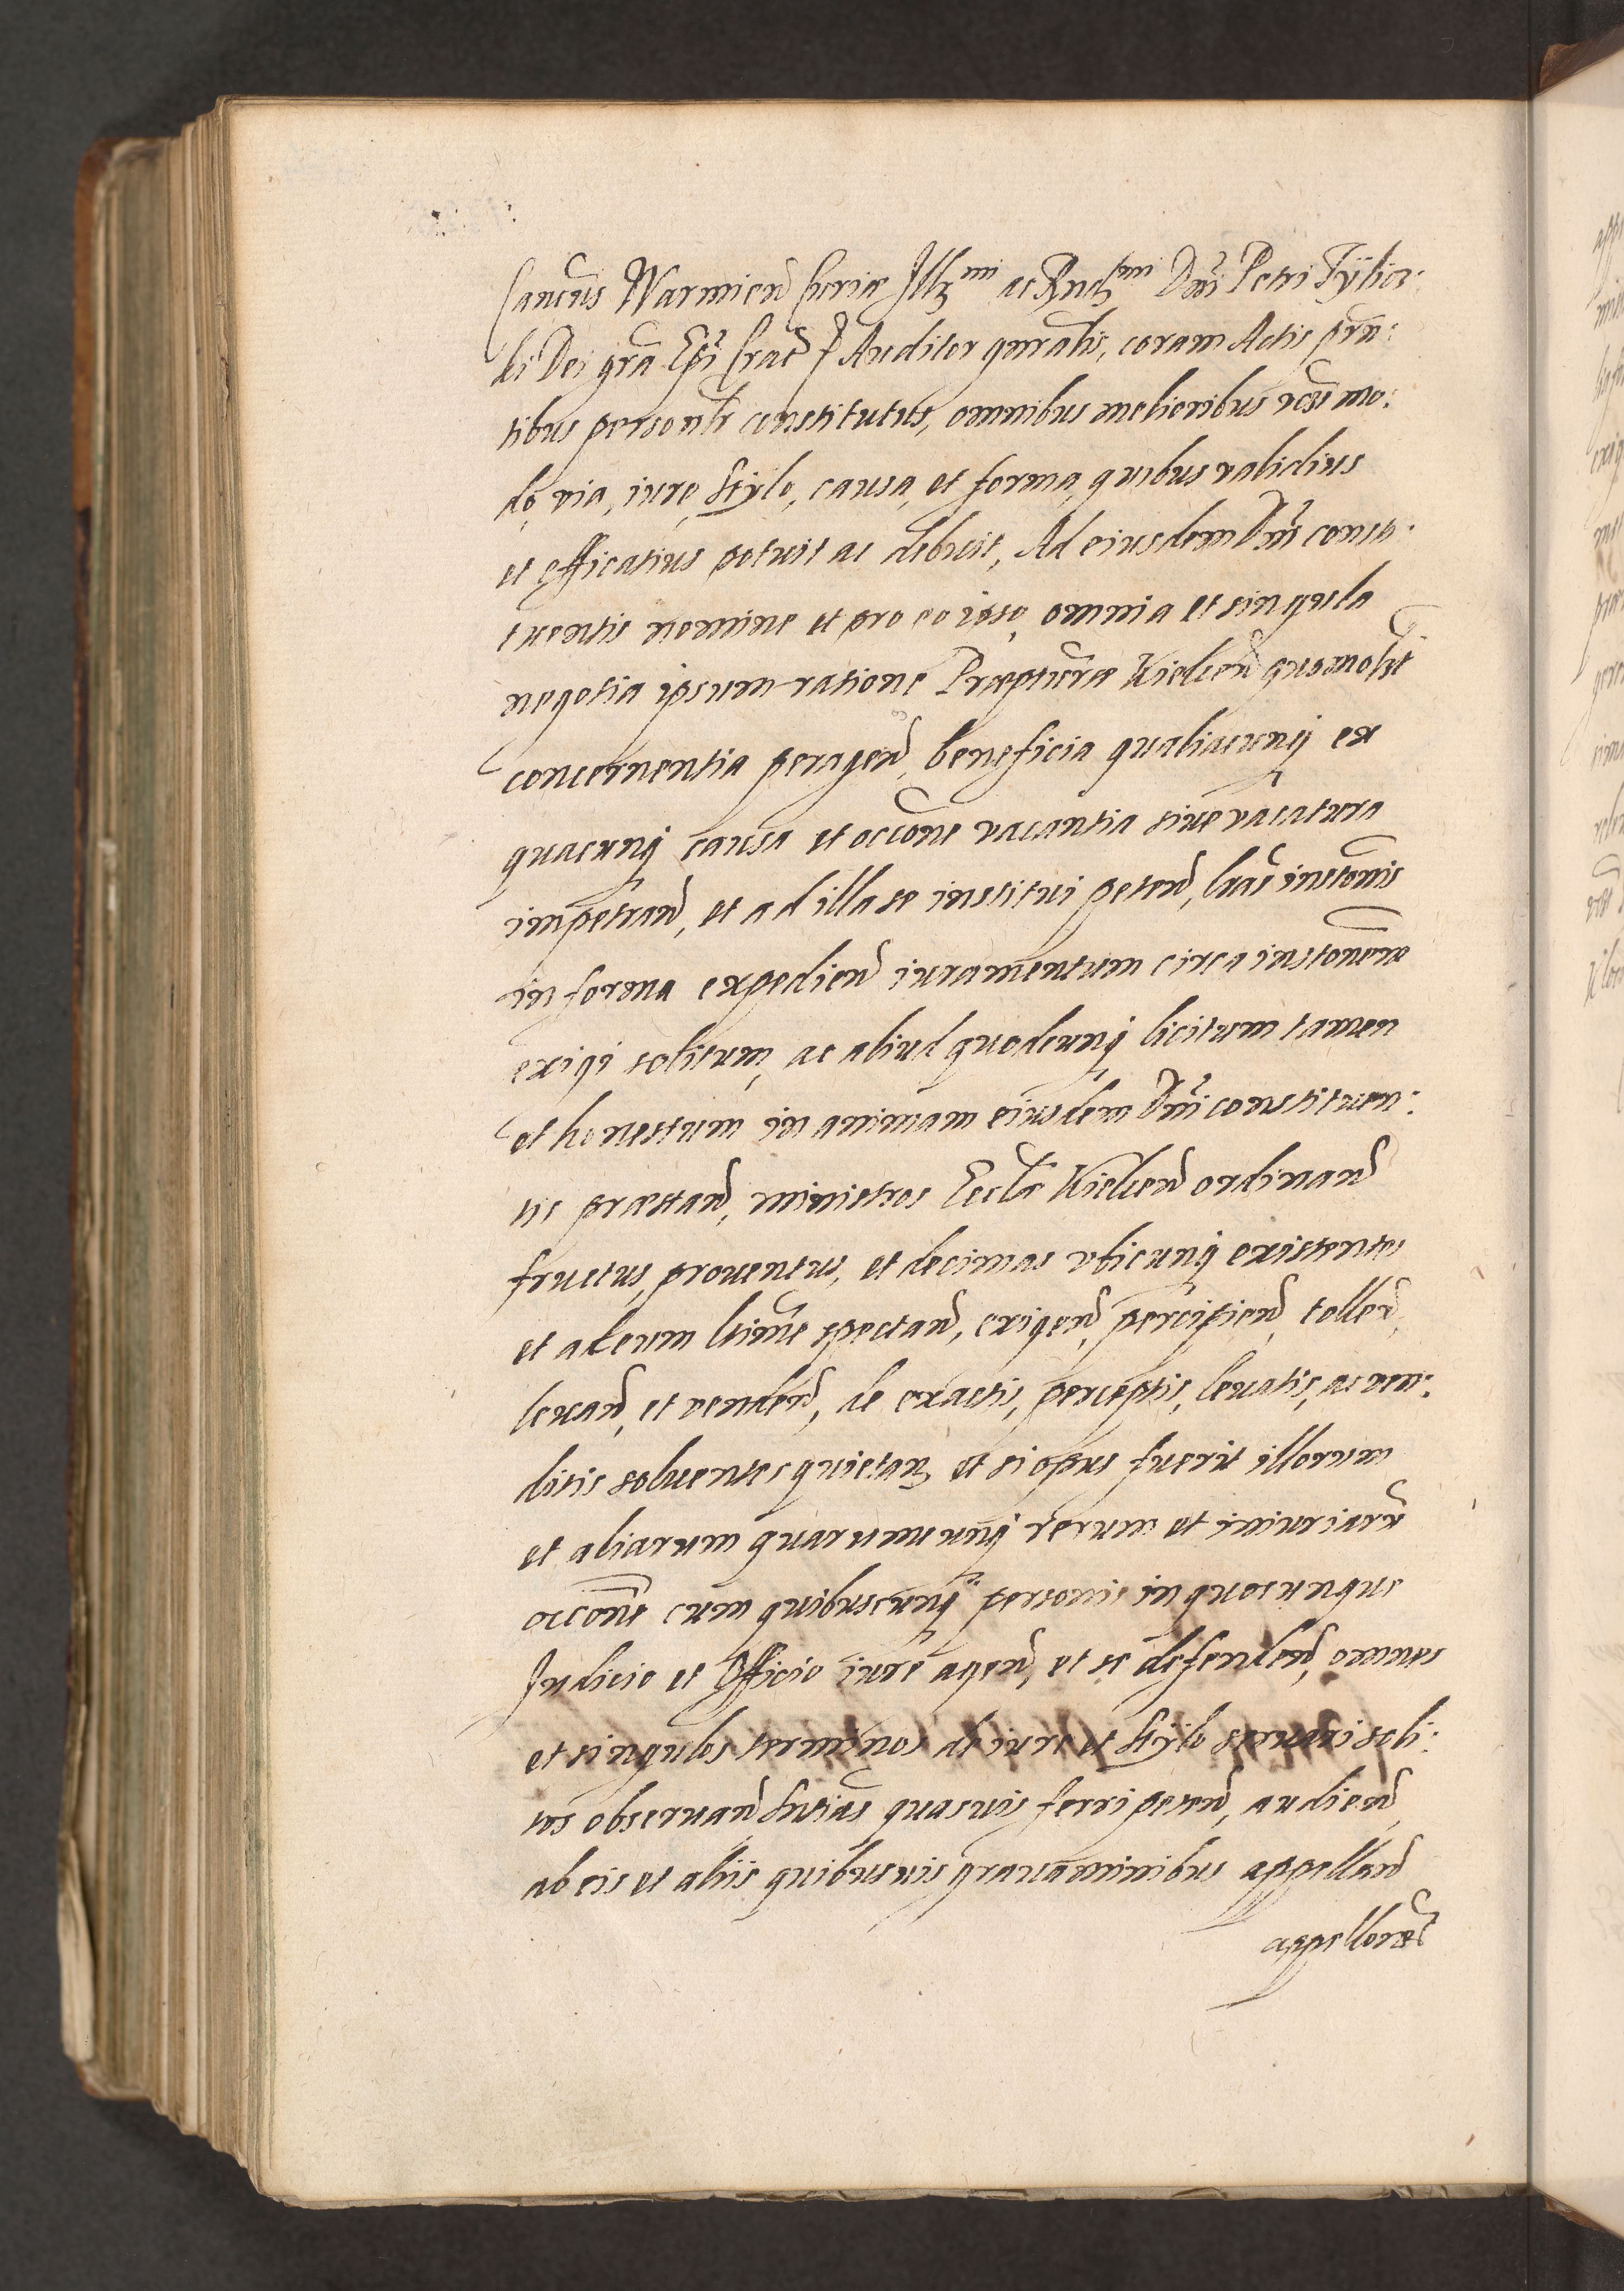 Cancus Warmien Curiæ Illmi ac Rndmi Dni Petri Tylic:
ki Dei gra Epi Crac Auditor gnralis, coram Actis prn:
tibus personlr constitutus, omnibus melioribus modis mo:
do, via, iure, stylo, causa, et forma, quibus validius
et efficatius potuit ac debuit, Ad eiusdem Dni consti:
tuentis nomine et pro eo ipso, omnia et singula
negotia ipsum ratione Præpturæ Kielcen quomolt
concernentia peragend, beneficia qualiacunq ex
quacunq causa et occone vacantia siue vacatura
impetrand, et ad illa se institui petend, lras instonis
in forma expediend iuramentum circa instonem
exigi solitum, ac aliud quodcunq licitum tamen
et honestum in animam eiusdem Dni constituen:
tis præstand, ministros Eccle Kielcen ordinand
fructus, prouentus, et decimas vbicunq existentes
et ad eum ltime spectand, exigend, percipiend, tollend,
leuand, et vendend, de exactis, perceptis, leuatis, ac ven:
ditis soluentes quietand, et si opus fuerit illorum
et aliarum quarumcunq rerum et iniuriaru
occone cum quibuscunq personis in quocunque
Judicio et Officio iure agend, et se defendend, omnes
et singulos terminos de iure et stylo seruari soli:
tos obseruand sntias quasuis ferri petend, audiend,
ab eis et aliis quibusuis grauaminibus appelland